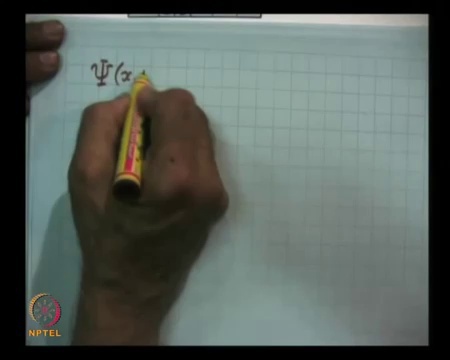 Ψ(x
NPTEL